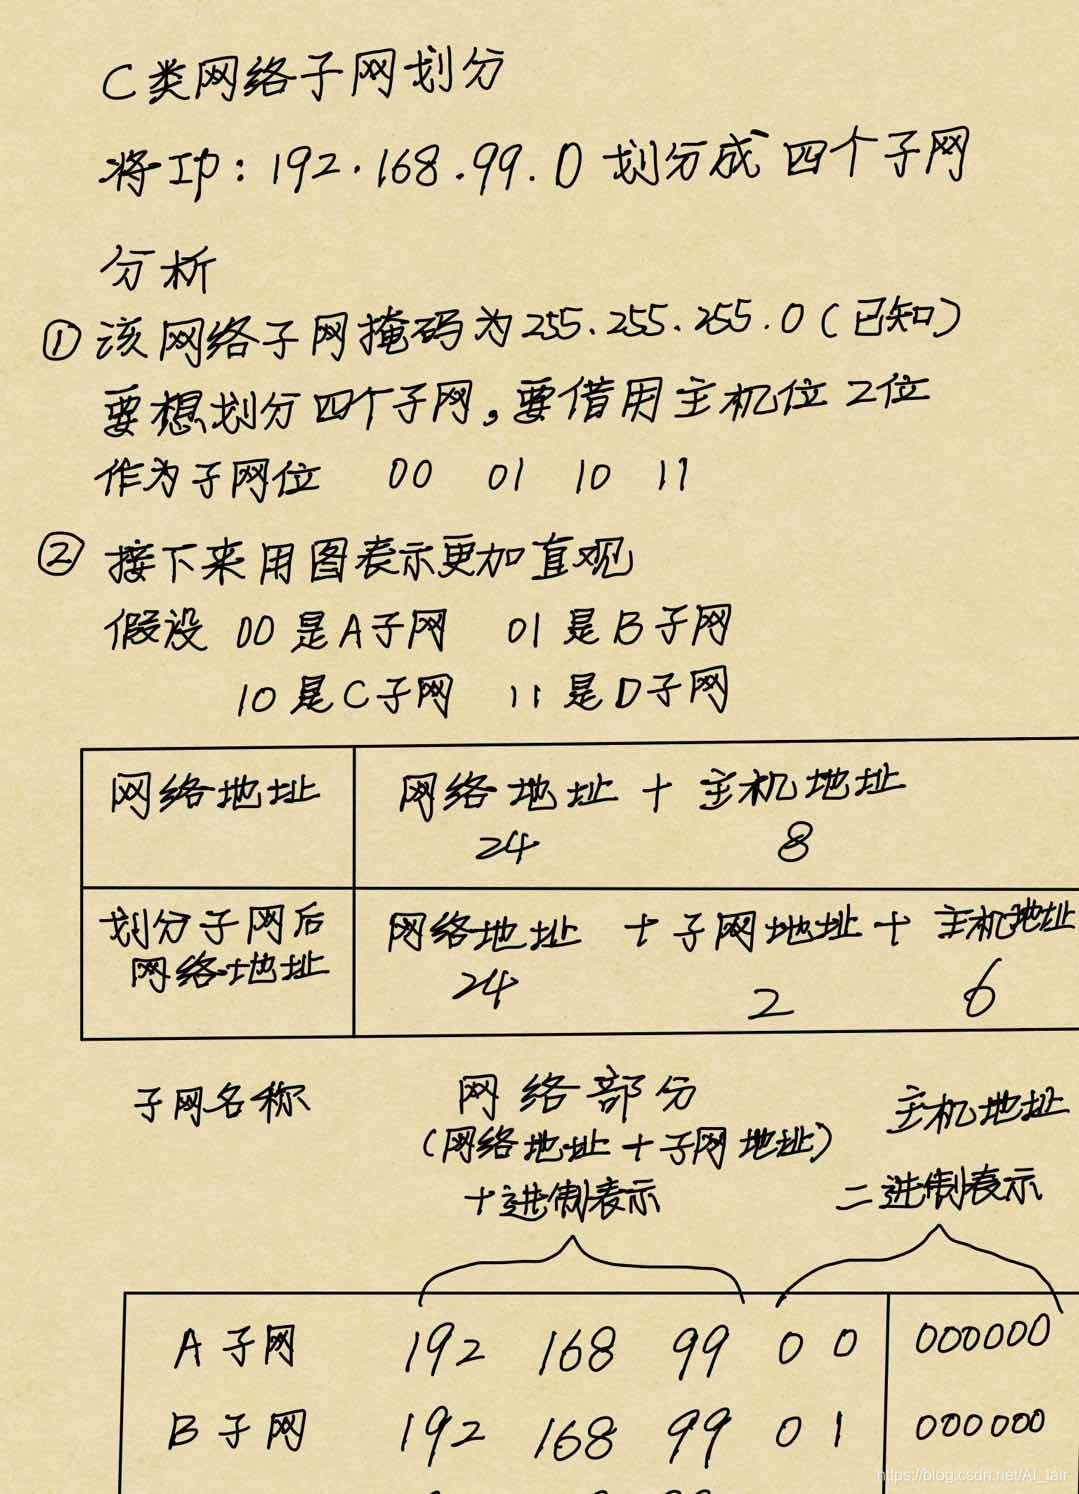 C类网络子网划分
将IP：192.168.99.0 划分成 四个子网
分析
① 该网络子网掩码为255.255.255.0（已知）
要想划分四个子网，要借用主机位2位
作为子网位 00 01 10 11
② 接下来用图表示更加直观
假设 00是A子网 01是B子网
10是C子网 11是D子网
网络地址 网络地址 + 主机地址
24 8
划分子网后 网络地址 + 子网地址 + 主机地址
网络地址 24 2 6
子网名称 网络部分 主机地址
（网络地址+子网地址）
十进制表示 二进制表示
A子网 192 168 99 0 0 000000
B子网 192 168 99 0 1 000000
https://blog.csdn.net/AI_tair